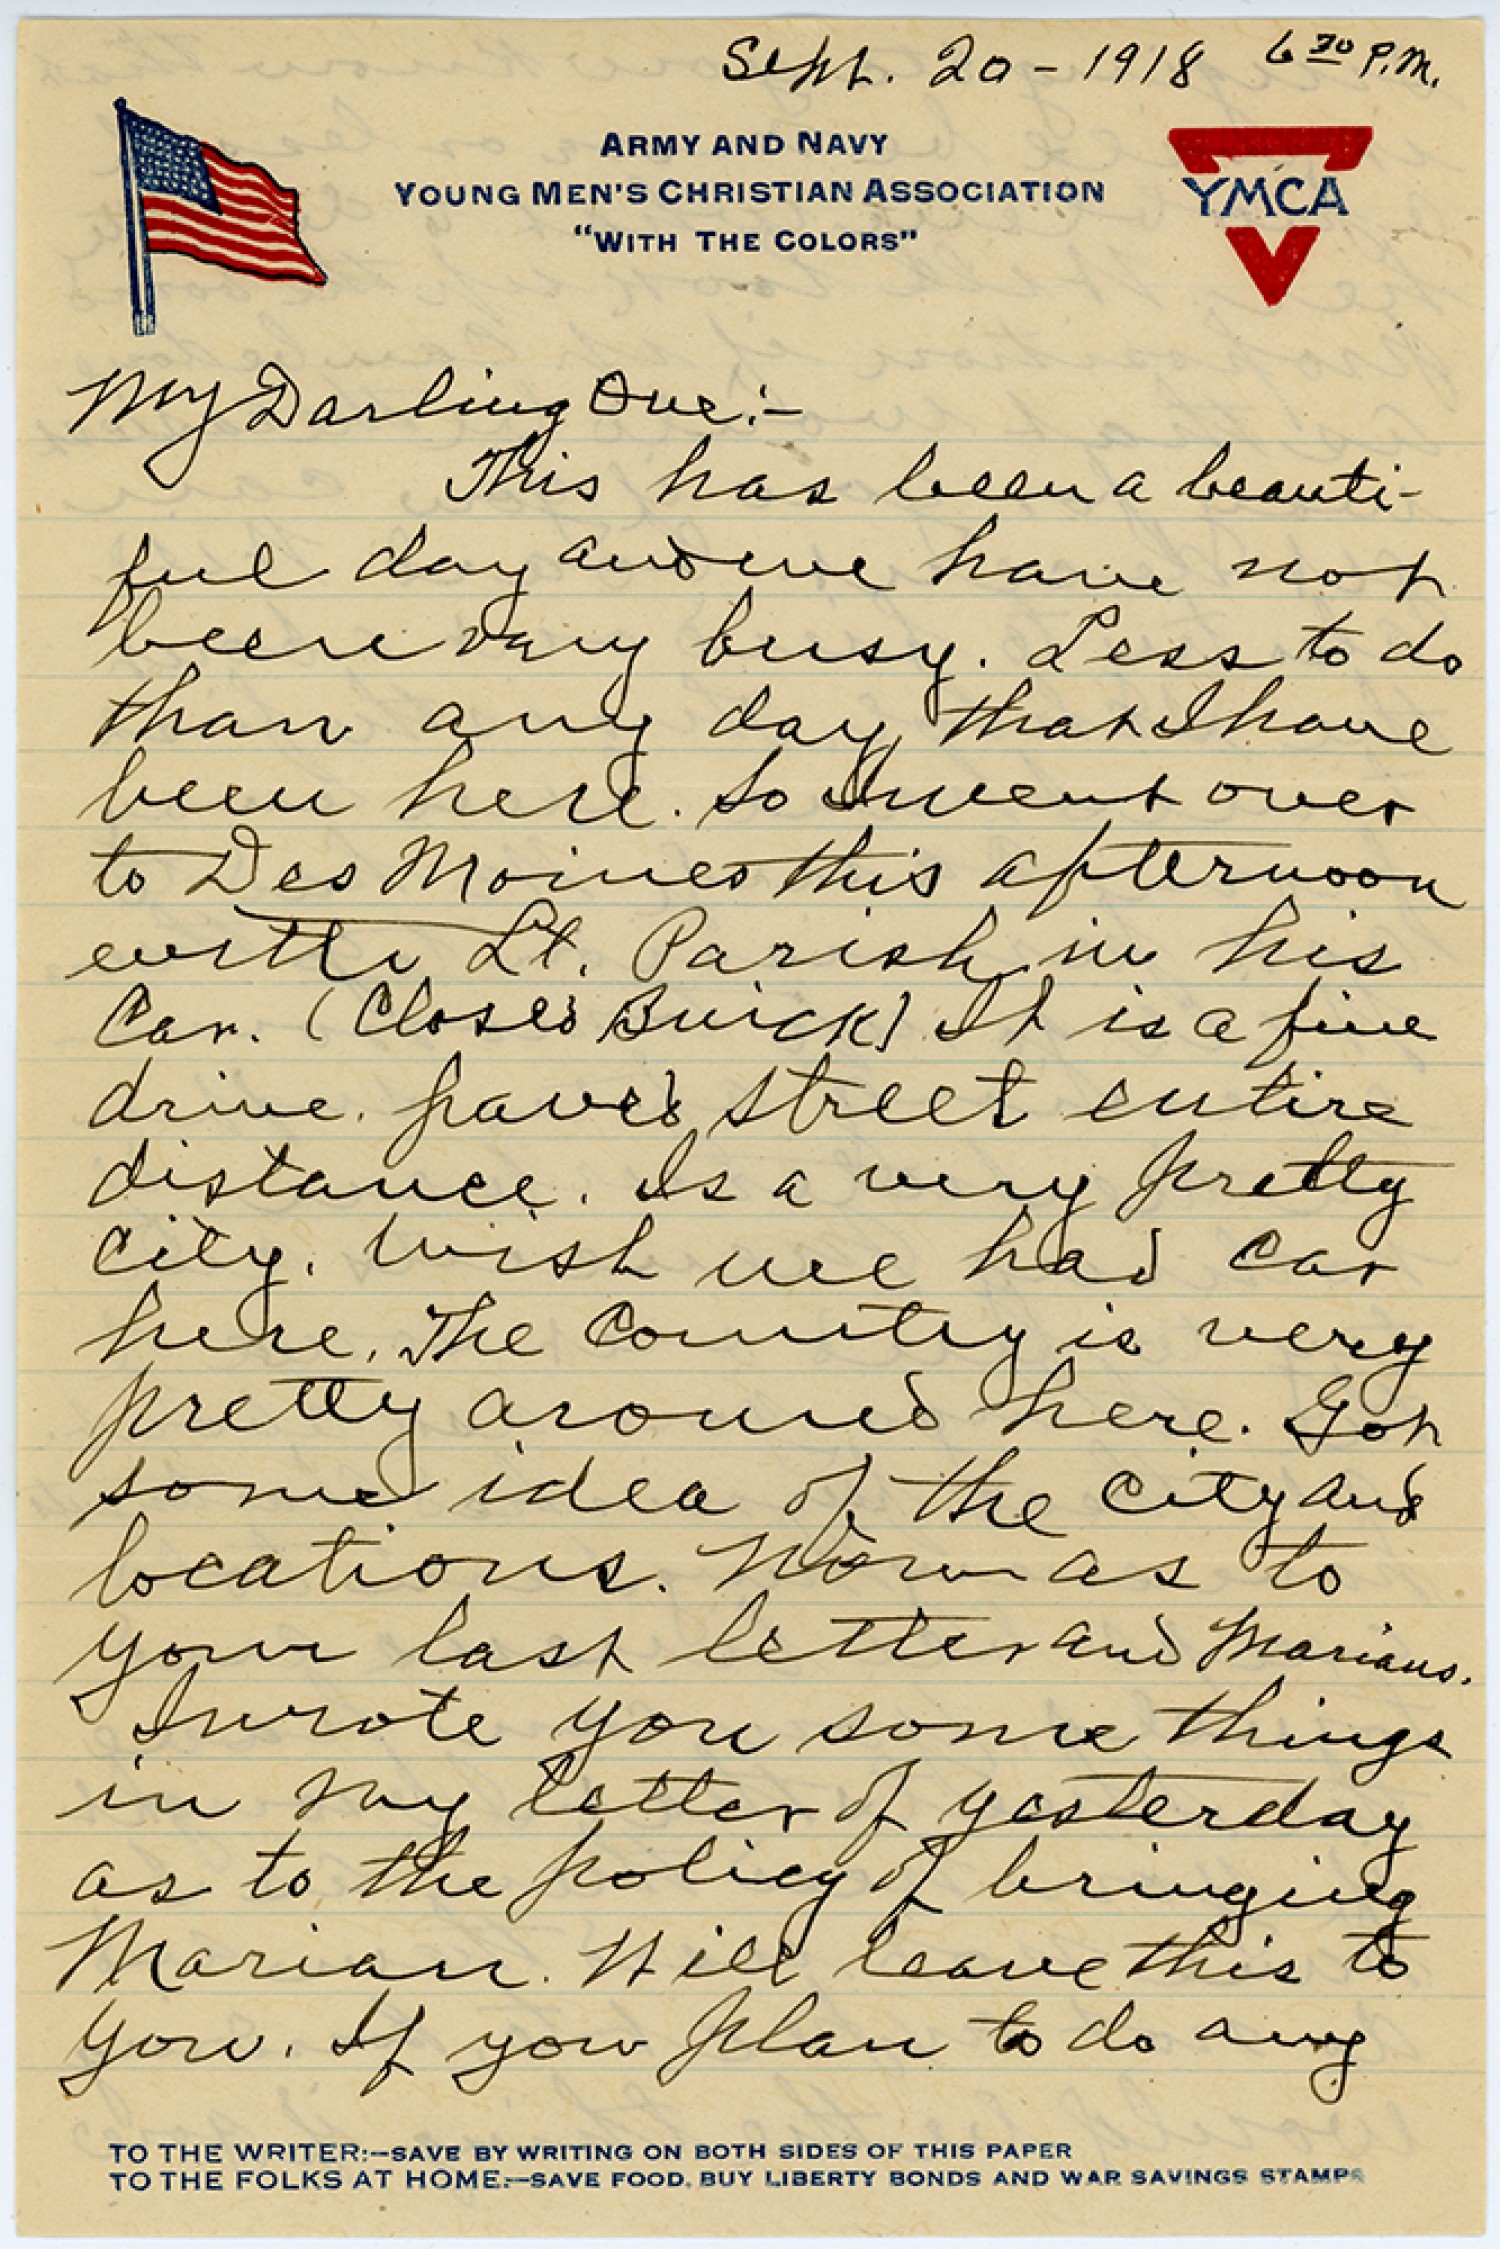 Sept. 20-1918 6³⁰ P.M.
ARMY AND NAVY
YOUNG MEN'S CHRISTIAN ASSOCIATION
"WITH THE COLORS"
YMCA
My Darling One:-
This has been a beauti-
ful day and we have not
been very busy. Less to do
than any day that I have
been here. So I went over
to Des Moines this afternoon
with Lt. Parish in his
Car. (Closed Buick) It is a fine
drive. paved street entire
distance. Is a very pretty
city. Wish we had car
here. The Country is very
pretty around here. Got
some idea of the city and
locations. Now as to
your last letter and Marians.
I wrote you some things
in my letter of yesterday
as to the policy of bringing
Marian. Will leave this to
you. If you plan to do any
TO THE WRITER:—SAVE BY WRITING ON BOTH SIDES OF THIS PAPER
TO THE FOLKS AT HOME:—SAVE FOOD, BUY LIBERTY BONDS AND WAR SAVINGS STAMPS